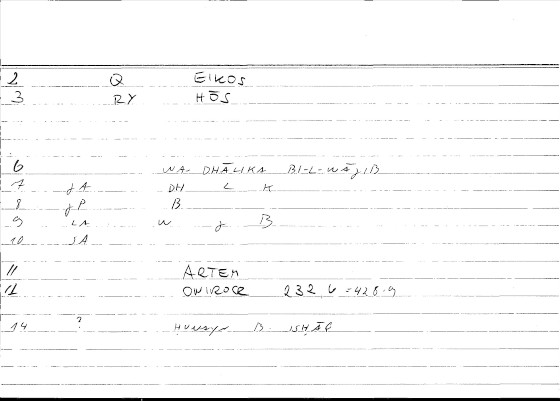 2 Q EIKOS
3 RY HŌS
6 WA-DHĀLIKA BI-L-WĀJIB
7 JA DH L K
8 JP B
9 LA W J B
10 JA
11 ARTEM
12 ONIROCR 232,6 = 428.9
14 ? ḤUNAYN B. ISḤĀQ